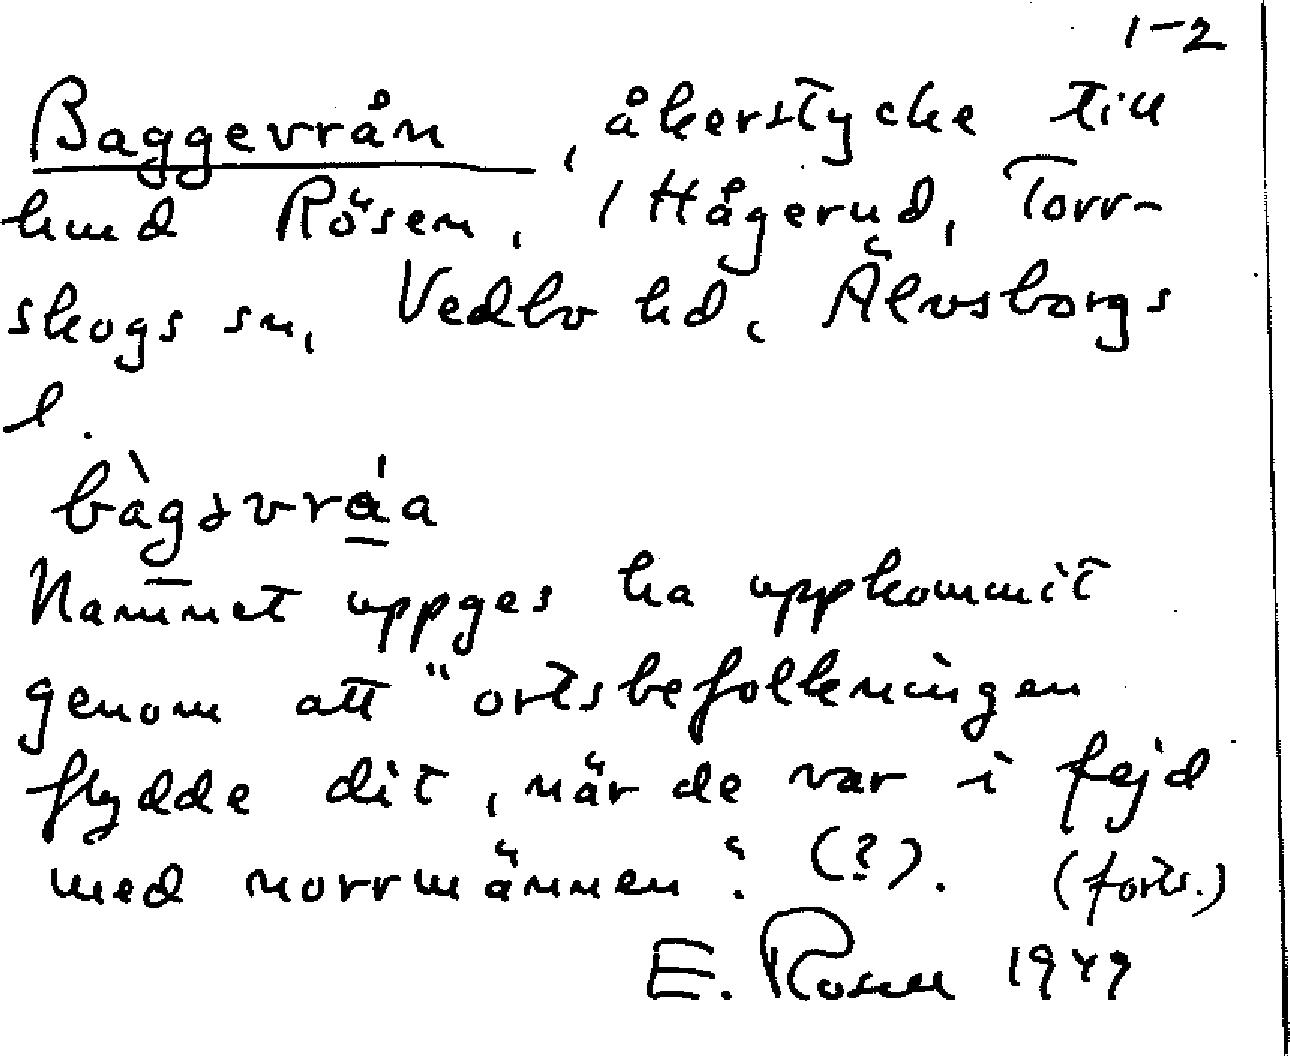 1-2
Baggevrån, åkerstycke till
hmd Rösen, i Hågerud, Torr-
skogs sn, Vedbo hd, Älvsborgs
l.
bàgsvráa
Namnet uppges ha uppkommit
genom att "ortsbefolkningen
flydde dit, när de var i fejd
med norrmännen". (?). (forts.)
E. Rosell 1949